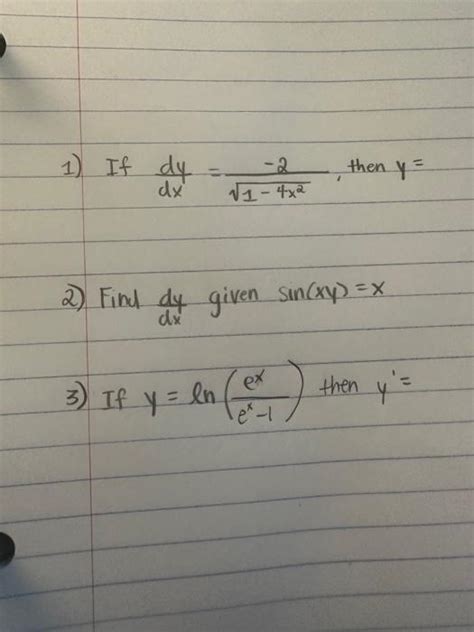 1) If dy/dx = -2/√(1-4x²), then y=
2) Find dy/dx given sin(xy)=x
3) If y = ln(eˣ/(eˣ-1)) then y'=